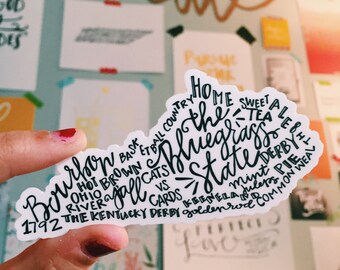 HOME SWEET ALE
the TEA 8
BASKETBALL COUNTRY
Bluegrass
State
Bourbon HOT BROWN
OHIO RIVER y'all CATS VS CARDS
DERBY PIE
mint juleps
KEENELAND
goldenrod COMMONWEALTH
1792 THE KENTUCKY DERBY